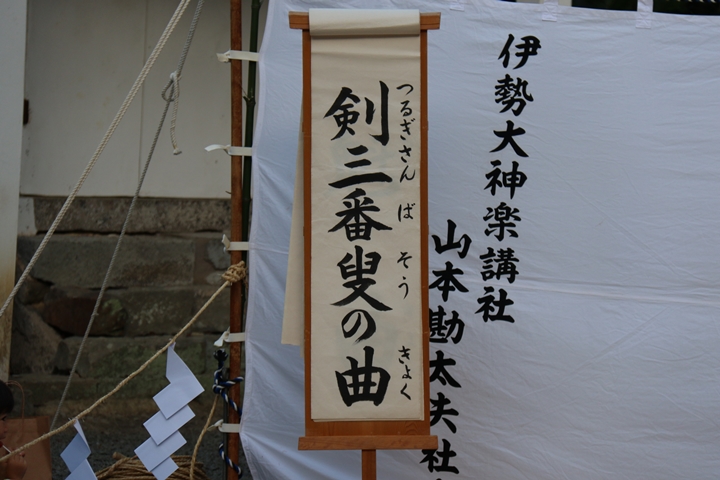 伊勢大神楽講社
山本勘太夫社
剣三番叟の曲
つるぎさんばそうきょく